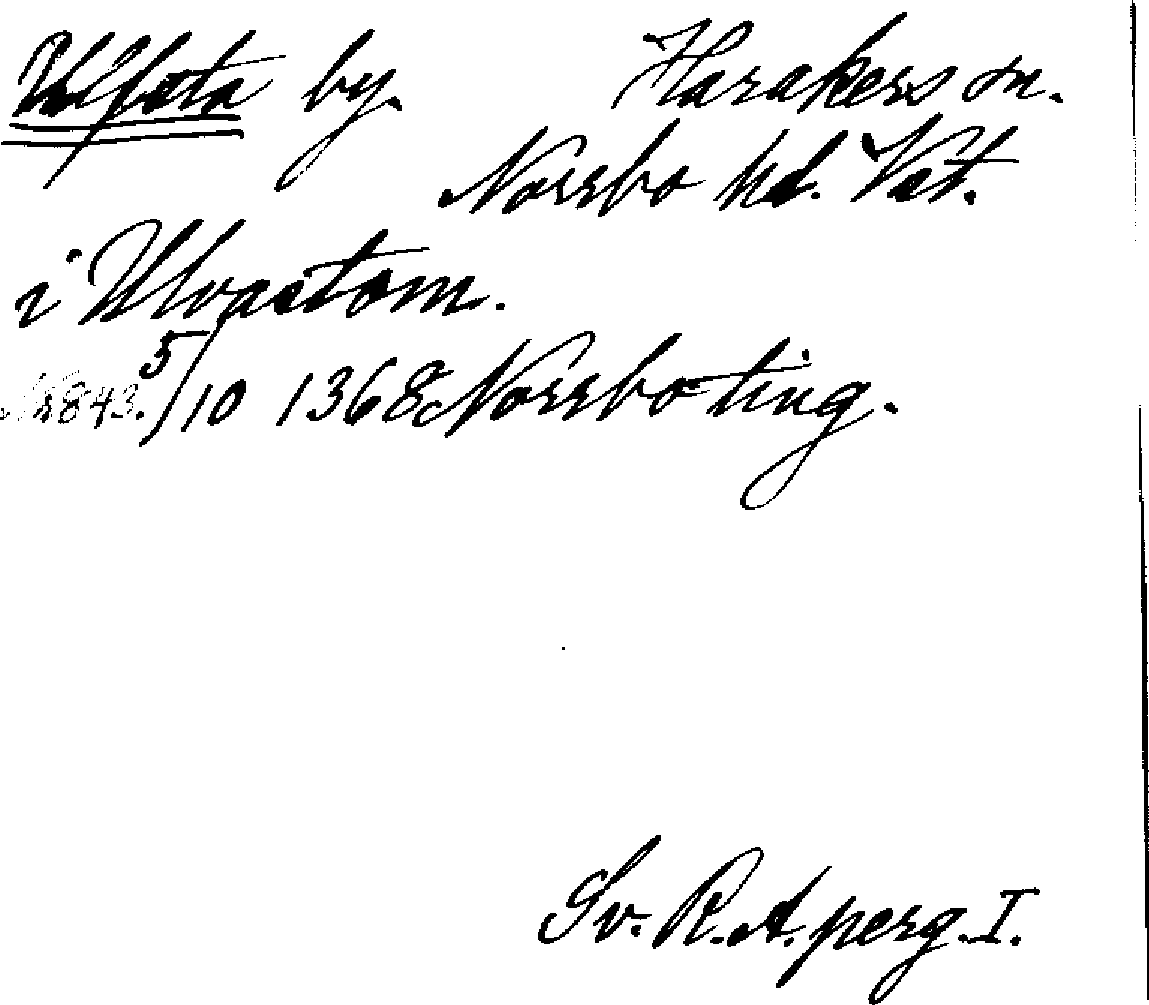 Ulfsta by. Harakers sn.
Norrbo hd. Vst.
i Ulvastom.
No 843. 5/10 1368 Norrbo ting.
Sv. R. A. perg. I.